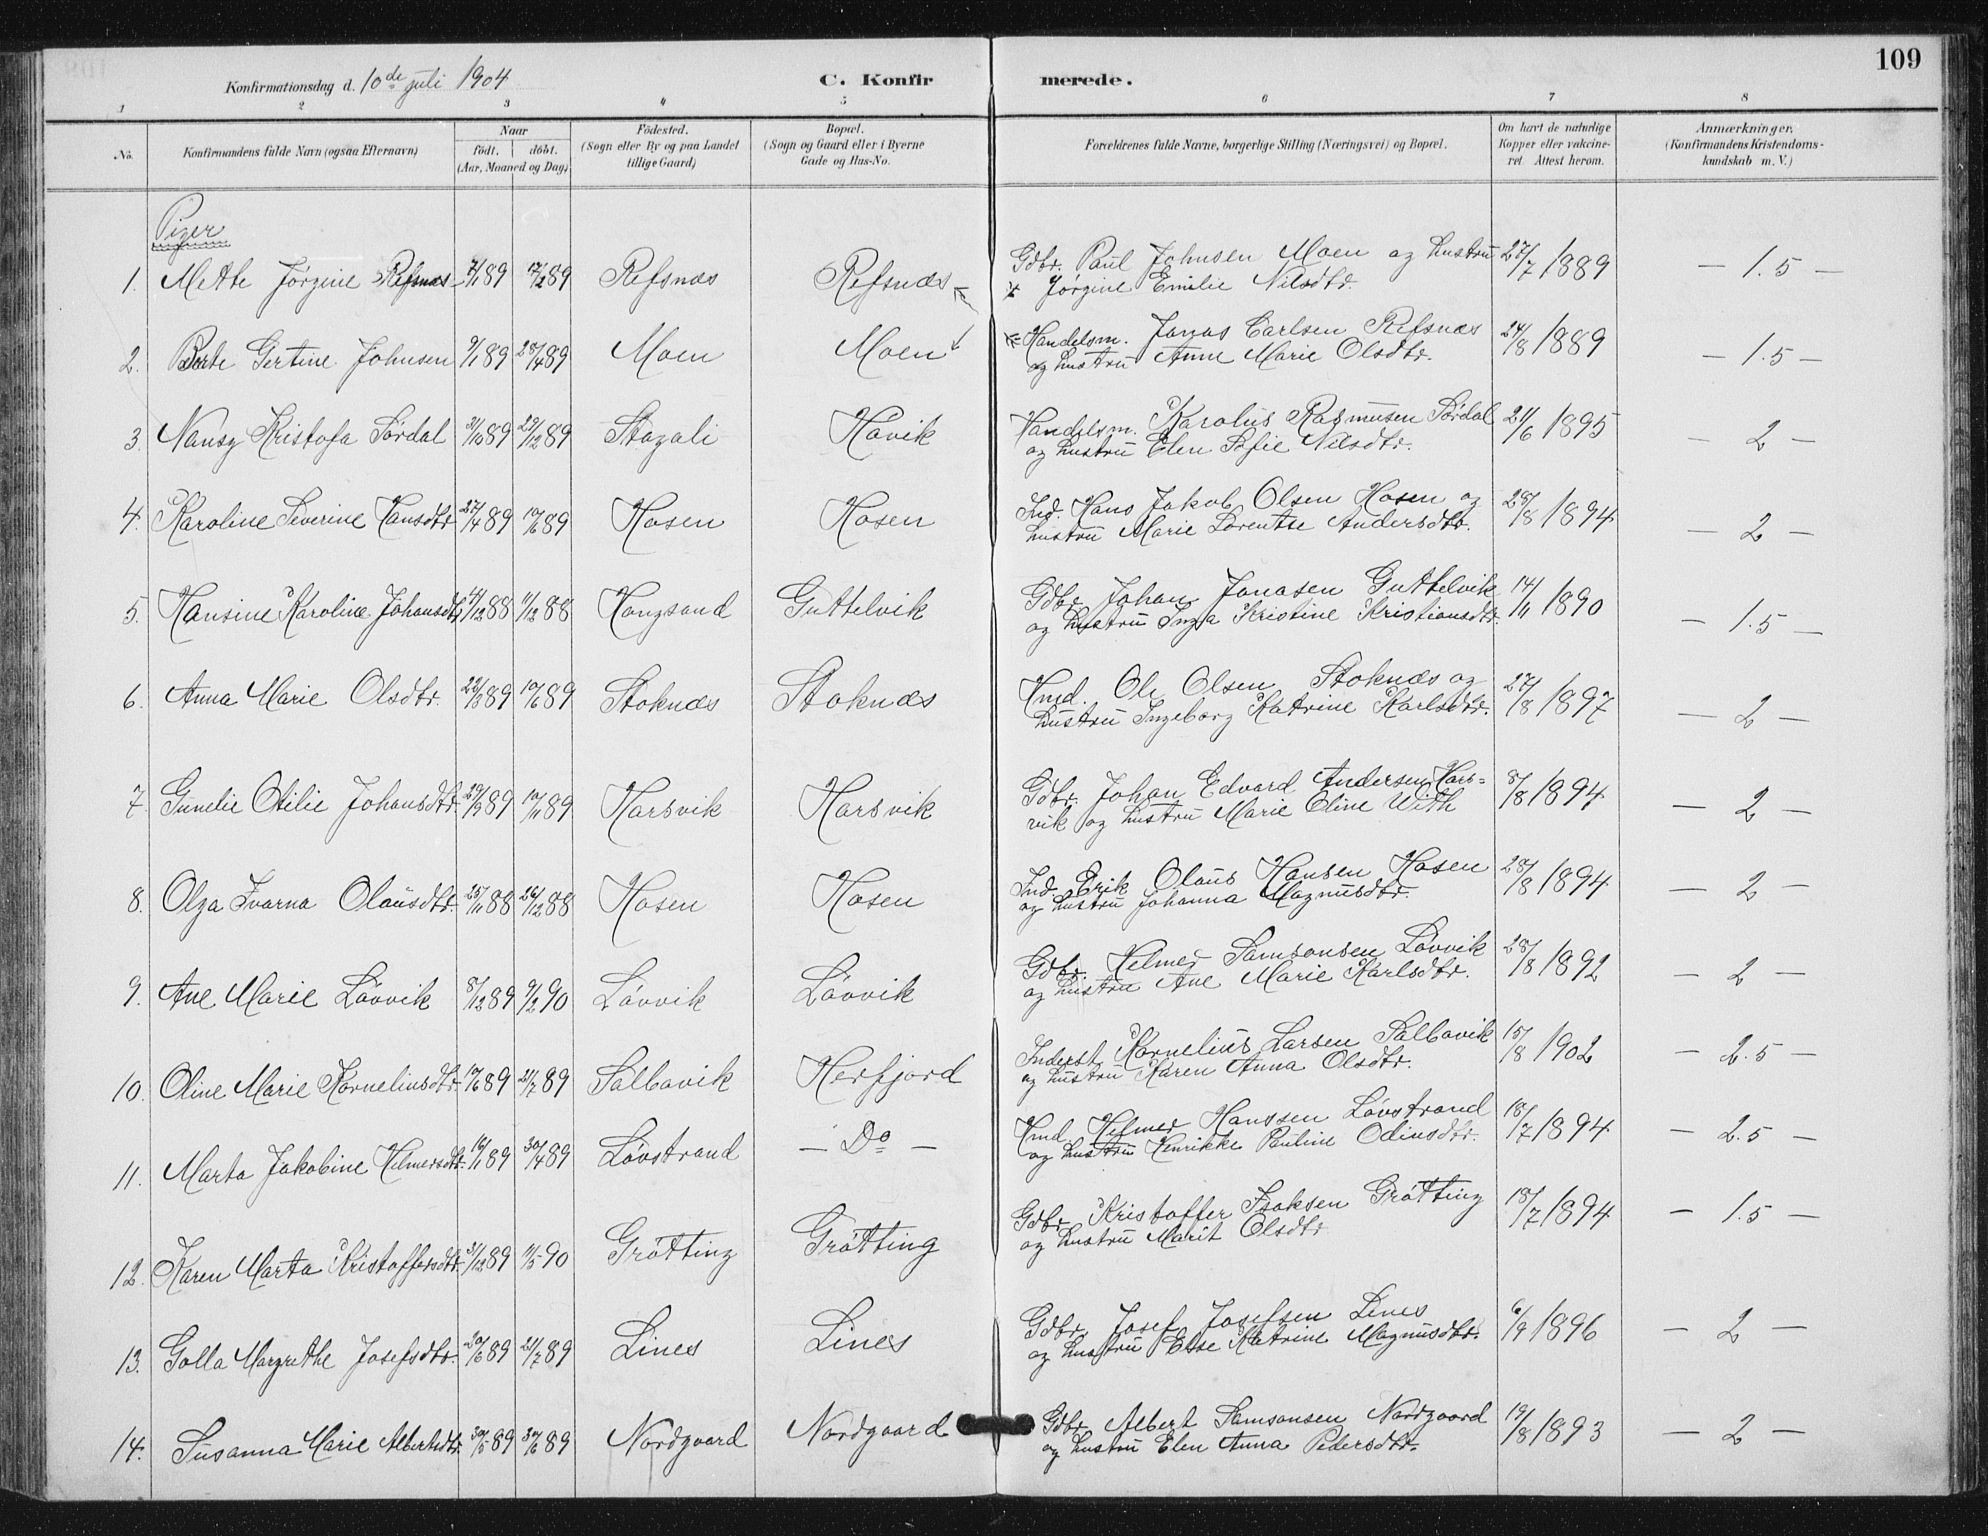 109
Konfirmationsdag d. 10de juli 1904
C. Konfirmerede.
1 2 3 4 5 6 7 8
No. Konfirmandens fulde Navn (ogsaa Efternavn) Naar födt. döbt. (Aar, Maaned og Dag) Födested. (Sogn eller By og paa Landet tillige Gaard) Bopæl. (Sogn og Gaard eller i Byerne Gade og Hus-No. Forældrenes fulde Navne, borgerlige Stilling (Næringsvei) og Bopæl. Om havt de naturlige Kopper eller vakcineret. Attest herom. Anmærkninger. (Konfirmandens Kristendomskundskab m. V.)
Piger
1. Mette Jörgine Refsnæs 89 89 Refsnæs Refsnæs Gdbr. Paul Johnsen Moen og hustru 27/7 1889 — 1.5 —
Jörgine Emilie Nilsdtr.
2. Berte Gertine Johnsen 9/1 89 28/4 89 Moen Moen Handelsm. Jonas Carlsen Refsnæs 24/8 1889 — 1.5 —
og hustru Anne Marie Olsdtr.
3. Nansy Kristofa Sördal 31/10 89 29/12 89 Stazali Havik Handelsm. Karolus Rasmusen Sördal 21/6 1895 — 2 —
og hustru Elen Sofie Nilsdtr.
4. Karoline Severine Hansdtr. 27/4 89 10/6 89 Hosen Hosen Ind. Hans Jakob Olsen Hosen og 28/8 1894 — 2 —
hustru Marie Lorentse Andersdtr.
5. Hansine Karoline Johansdtr. 88 11/12 88 Hongsand Guttelvik Gdbr. Johan Jonasen Guttelvik 14/11 1890 — 1.5 —
og hustru Inga Kristine Kristiansdtr.
6. Anna Marie Olsdtr. 22/3 89 10/6 89 Stoknæs Stoknæs Hmd. Ole Olsen Stoknæs og 27/8 1897 — 2 —
hustru Ingeborg Katrine Karlsdtr.
7. Gunelie Otilie Johansdtr. 29/9 89 10/11 89 Harsvik Harsvik Gdbr. Johan Edvard Andersen Hars- 8/8 1894 — 2 —
vik og hustru Marie Eline With
8. Olga Ivarna Olausdtr. 25/11 88 26/12 88 Hosen Hosen Ind. Erik Olaus Hansen Hosen 28/8 1894 — 2 —
og hustru Johanna Magnusdtr.
9. Ane Marie Lövvik 8/12 89 9/2 90 Lövvik Lövvik Gdbr. Helmer Samsonsen Lövvik 28/8 1892 — 2 —
og hustru Ane Marie Karlsdtr.
10. Oline Marie Kornelinsdtr. 89 21/7 89 Salbavik Herfjord Inderst Kornelius Larsen Salbavik 15/8 1902 — 2.5 —
og hustru Karen Anna Olsdtr.
11. Marta Jakobine Helmersdtr. 16/1 89 30/4 89 Lövstrand — Do — Hmd. Helmer Hanssen Lövstrand 18/7 1894 — 2.5 —
og hustru Henrikke Pauline Odinsdtr.
12. Karen Marta Kristoffersdtr. 31/12 89 11/5 90 Grötting Grötting Gdbr. Kristoffer Isaksen Grötting 18/7 1894 — 1.5 —
og hustru Marit Olsdtr
13. Golla Margrethe Josefsdtr. 20/6 89 21/7 89 Lines Lines Gdbr. Josef Josefsen Lines 6/9 1896 — 2 —
og hustru Else Katrine Magnusdtr.
14. Susanna Marie Albertsdtr. 30/5 89 30/6 89 Nordgaard Nordgaard Gdbr. Albert Samsonsen Nordgaard 19/8 1893 — 2 —
og hustru Elen Anna Pedersdtr.